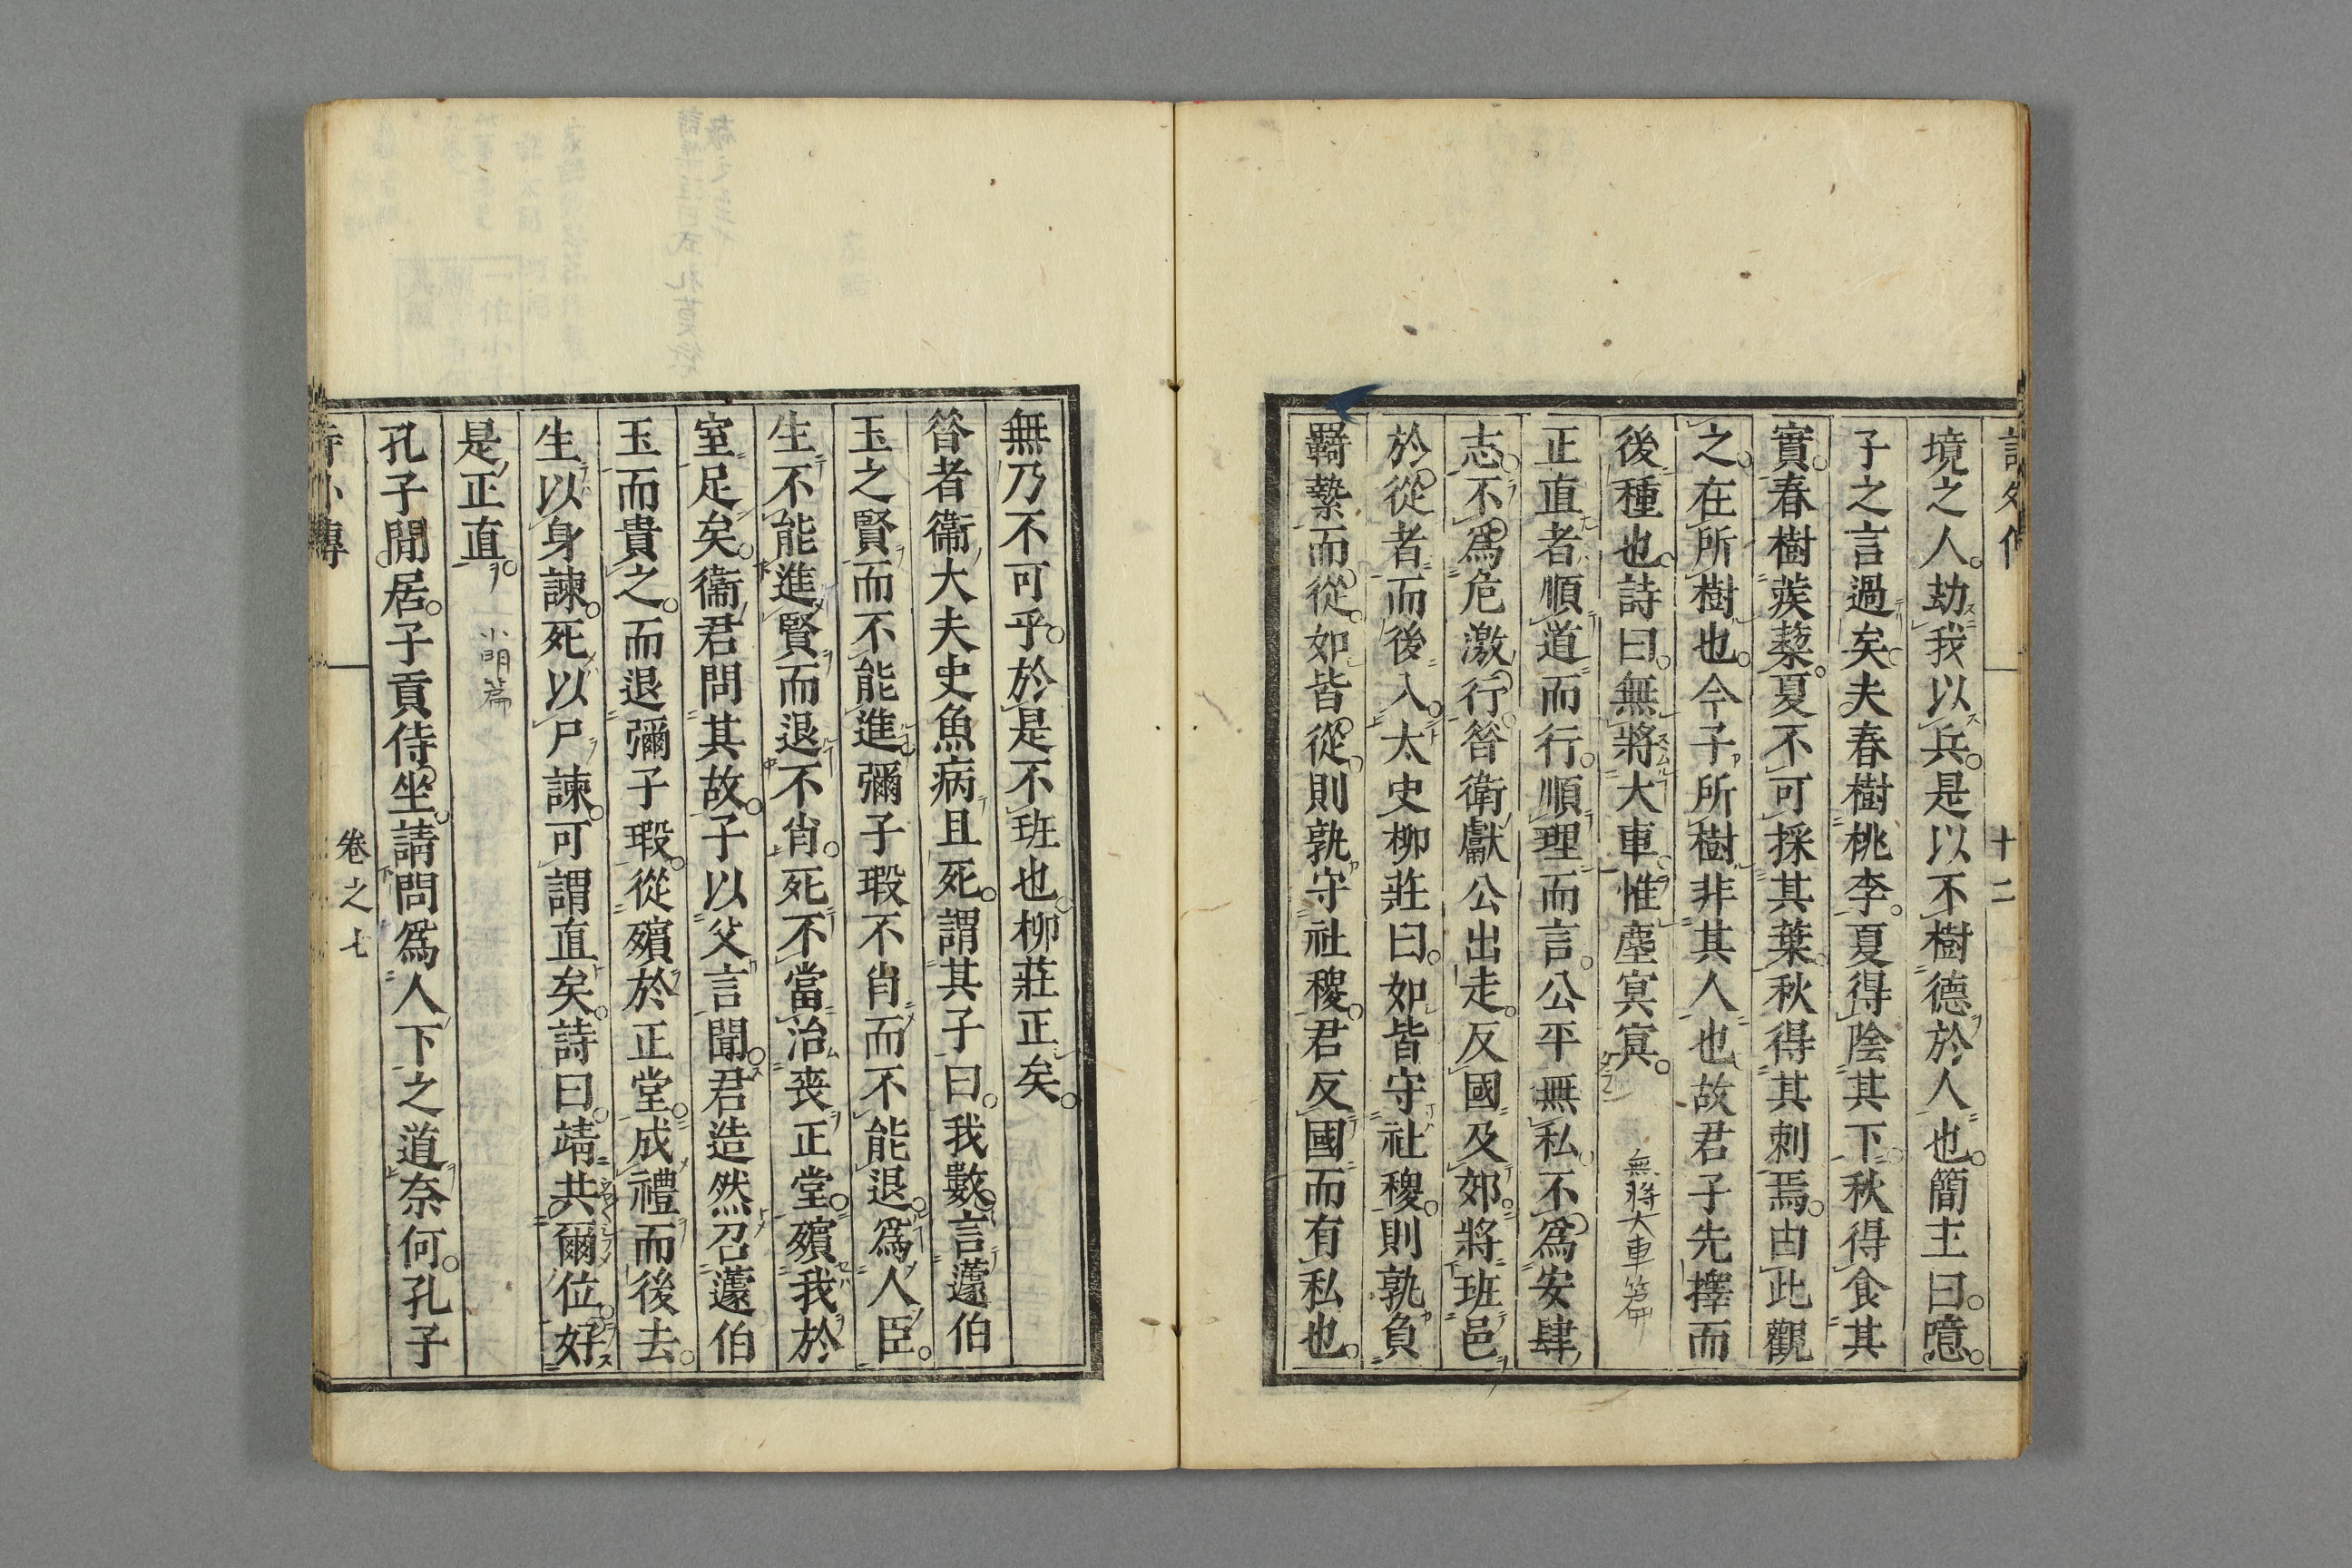 境之人劫我以兵是以不樹德於人也簡主曰噫
子之言過矣夫春樹桃李夏得陰其下秋得食其
實春樹蒺蔾夏不可採其葉秋得其刺焉由此觀
之在所樹也今子所樹非其人也故君子先擇而
後種也詩曰無將大車惟塵冥冥 無將大車篇
正直者順道而行順理而言公平無私不爲安肆
志不爲危激行昝衛獻公出走反國及郊將班邑
於從者而後入太史柳莊曰如皆守社稷則孰負
羈縶而從如皆從則孰守社稷君反國而有私也
十二
無乃不可乎於是不班也柳莊正矣
昝者衞大夫史魚病且死謂其子曰我數言蘧伯
玉之賢而不能進彌子瑕不肖而不能退爲人臣
生不能進賢而退不肖死不當治丧正堂殯我於
室足矣衞君問其故子以父言聞君造然召蘧伯
玉而貴之而退彌子瑕從殯於正堂成禮而後去
生以身諫死以尸諫可謂直矣詩曰靖共爾位好
是正直 小明篇
孔子閒居子貢侍坐請問爲人下之道奈何孔子
卷之七